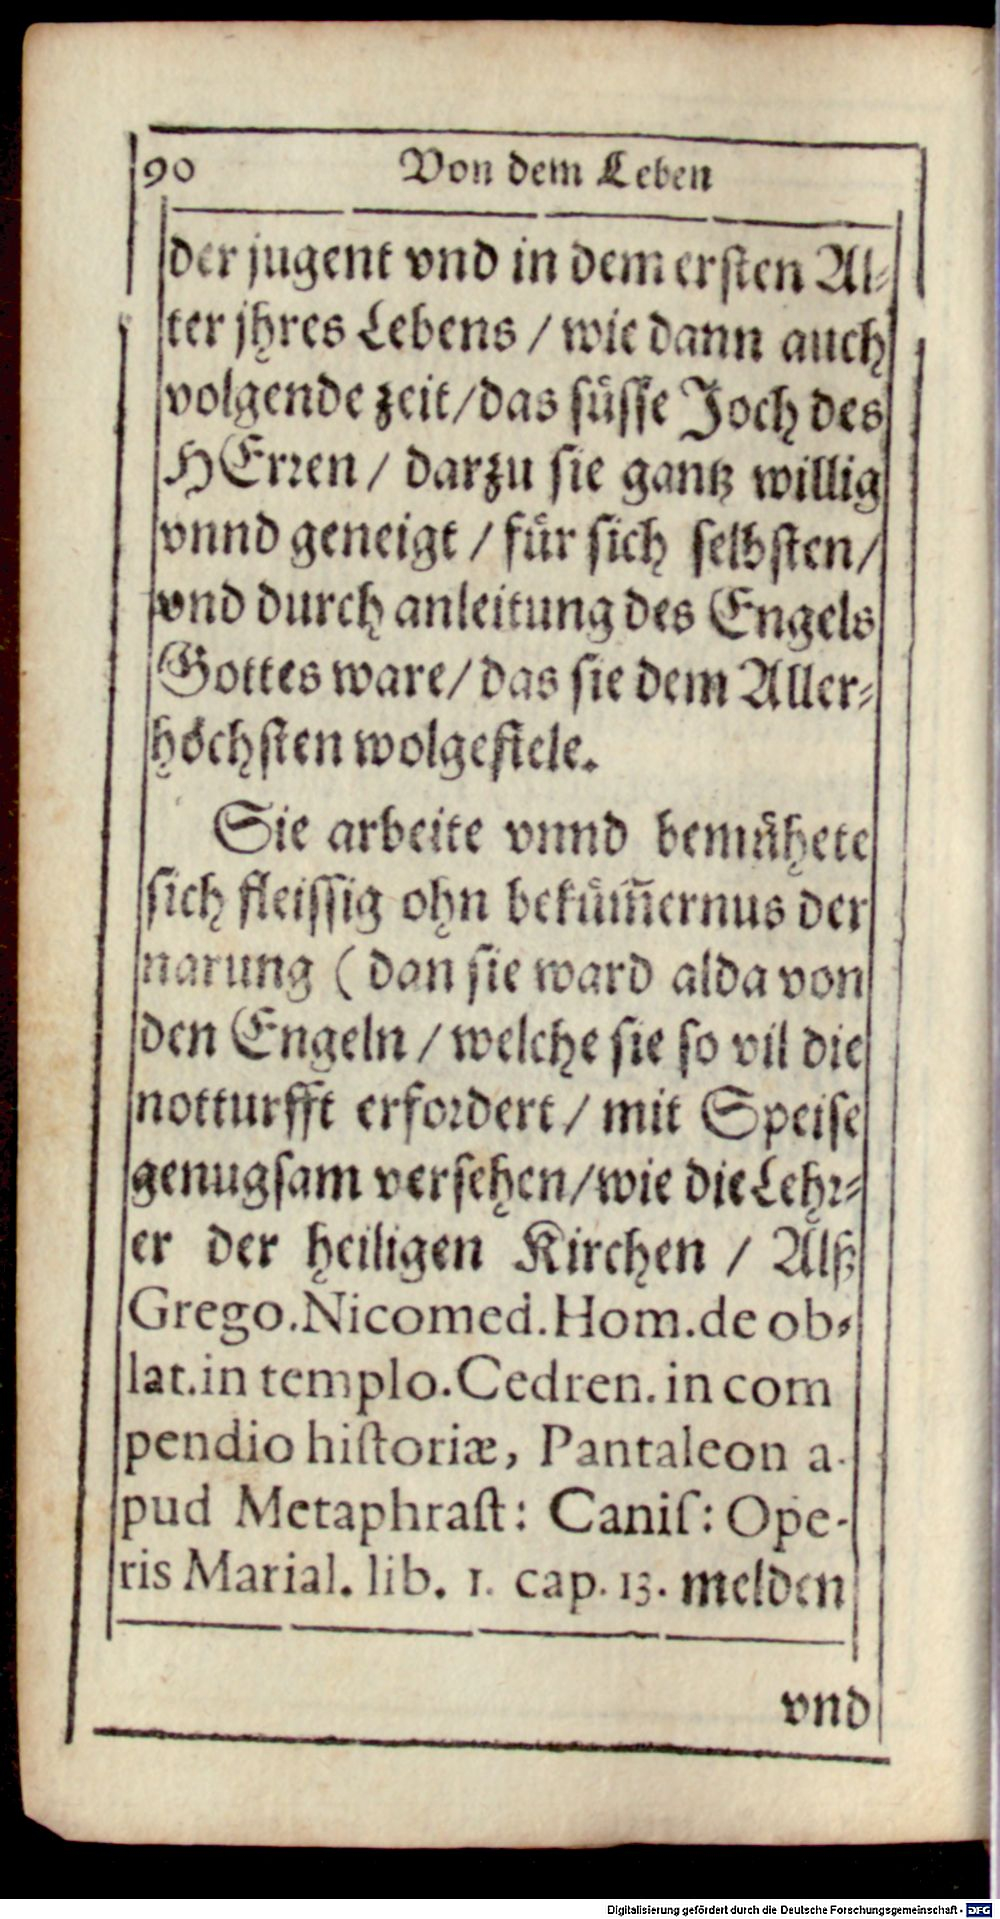 90 Von dem Leben
der jugent vnd in dem ersten Al⸗
ter jhres Lebens / wie dann auch
volgende zeit / das süsse Joch des
HErren / darzu sie gantz willig
vnnd geneigt / für sich selbsten /
vnd durch anleitung des Engels
Gottes ware / das sie dem Aller⸗
höchsten wolgefiele.
Sie arbeite vnnd bemühete
sich fleissig ohn beküm̃ernus der
narung ( dan sie ward alda von
den Engeln / welche sie so vil die
notturfft erfordert / mit Speise
genugsam versehen / wie die Lehr⸗
er der heiligen Kirchen / Alß
Grego. Nicomed. Hom. de ob-
lat. in templo. Cedren. in com
pendio historiæ, Pantaleon a-
pud Metaphrast: Canis: Ope-
ris Marial. lib. 1. cap. 13. melden
vnd
Digitalisierung gefördert durch die Deutsche Forschungsgemeinschaft - DFG